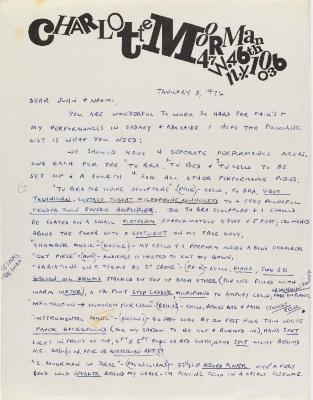 CHARLOTTE MOORMAN
47 W 46th
N.Y. 10036
JANUARY 3, 1976
DEAR JOHN & NAOMI,
YOU ARE WONDERFUL TO WORK SO HARD FOR PAIK'S &
MY PERFORMANCES IN SYDNEY & ADELAIDE! I HOPE THE FOLLOWING
LIST IS WHAT YOU NEED:
WE SHOULD HAVE 4 SEPERATE PERFORMANCE AREAS,
ONE EACH FOR THE "TV BRA", "TV BED" & "TV CELLO" TO BE
SET UP & A FOURTH FOR ALL OTHER PERFORMANCE PIECES.
"TV BRA FOR LIVING SCULPTURE" (PAIK) - CELLO, TV BRA, VIDEO
TECHNICIAN, CONTACT THROAT MICROPHONE CONNECTED TO A VERY POWERFUL
FENDER TWIN REVERB AMPLIFIER. THE TV BRA SCULPTURE & I SHOULD
BE SEATED ON A SMALL PLATFORM, APPROXIMATELY 5 FEET X 5 FEET, 12 INCHES
ABOVE THE FLOOR WITH A SPOTLIGHT ON MY FACE ONLY.
CHAMBER MUSIC - MY CELLO & I PERFORM INSIDE A BLUE CHAMBER
"CUT PIECE" (ONO) - AUDIENCE IS INVITED TO CUT MY GOWN.
"VARIATIONS ON A THEME BY ST SAENS" - (PAIK) CELLO, PIANO, TWO 50
GALLON OIL DRUMS STACKED ON TOP OF EACH OTHER (TOP ONE FILLED WITH
WARM WATER), A 7½ FOOT STEP LADDER, MICROPHONE TO AMPLIFY CELLO,
INFILTRATION - HOMOGEN FOR CELLO (BEUYS) - CELLO,
"INSTRUMENTAL MUSIC" - 40 FEET WIDE BY 20 FEET HIGH THIN WHITE
PAPER BACKGROUND (FOR MY SHADOW TO BE CUT & BURNED IN), HAND SPOT
LIGHT IN FRONT OF ME, 6 FT X 5 FT BLUE OR RED CLOTH, HAND SPOT LIGHT BEHIND
ME. KOSUGI OR PAIK OR AUSTRALIAN ARTIST
"C. MOORMAN IN DRAG" - (MCWILLIAMS) - 33⅓ LP RECORD PLAYER WITH A VERY
GOOD LOUD SPEAKER BEHIND MY CHAIR - I'M PLAYING CELLO IN A CASALS COSTUME.